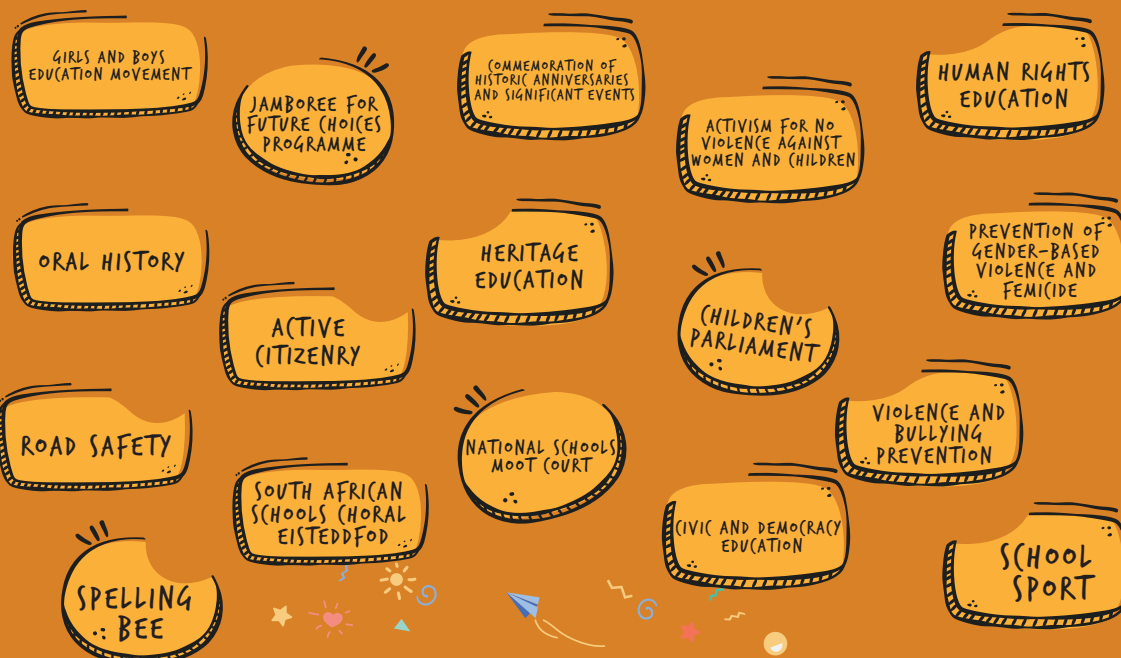 GIRLS AND BOYS
EDUCATION MOVEMENT
JAMBOREE FOR
FUTURE CHOICES
PROGRAMME
COMMEMORATION OF
HISTORIC ANNIVERSARIES
AND SIGNIFICANT EVENTS
ACTIVISM FOR NO
VIOLENCE AGAINST
WOMEN AND CHILDREN
HUMAN RIGHTS
EDUCATION
ORAL HISTORY
ACTIVE
CITIZENRY
HERITAGE
EDUCATION
CHILDREN'S
PARLIAMENT
PREVENTION OF
GENDER-BASED
VIOLENCE AND
FEMICIDE
ROAD SAFETY
SOUTH AFRICAN
SCHOOLS CHORAL
EISTEDDFOD
NATIONAL SCHOOLS
MOOT COURT
VIOLENCE AND
BULLYING
PREVENTION
CIVIC AND DEMOCRACY
EDUCATION
SPELLING
BEE
SCHOOL
SPORT